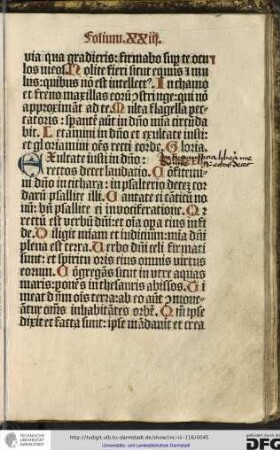 Folium. XXiii.
via qua gradieris: firmabo sup te ocu
los meos Nolite fieri sicut equus ⁊ mu
lus: quibus nō est intellect9. In chamo
et freno maxillas eorū ɔstringe: qui nō
approximāt ad te Multa flagella pec⸗
catoris: sperātē aūt in dn̄o mīa circūda
bit. Letamini in dn̄o et exultate iusti:
et gloriamini oēs recti corde. Gloria.
Exultate iusti in dn̄o:
rectos decet laudatio. Cōfitemi⸗
ni dn̄o in cithara: in psalterio decez cor
darū psallite illi. Cantate ei cāticū no⸗
uū: bn̄ psallite ei ī vociferatione. Qr
rectū est verbū dn̄i: et oīa opa eius in fi
de. Diligit mīam et iudicium: mīa dn̄i
plena est terra. Verbo dn̄i celi firmati
sunt: et spiritu oris eius omnis virtus
eorum. Cōgregās sicut in vtre aquas
maris: ponēs in thesauris abissos. Ti
meat dn̄m oīs terra: ab eo aūt ɔmoue⸗
ātur om̄s inhabitātes orbē. Qm̄ ipse
dixit et facta sunt: ipse mādauit et crea
http://tudigit.ulb.tu-darmstadt.de/show/inc-iii-118/0045
Universitäts- und Landesbibliothek Darmstadt
TECHNISCHE
UNIVERSITÄT
DARMSTADT
gefördert durch die
DFG